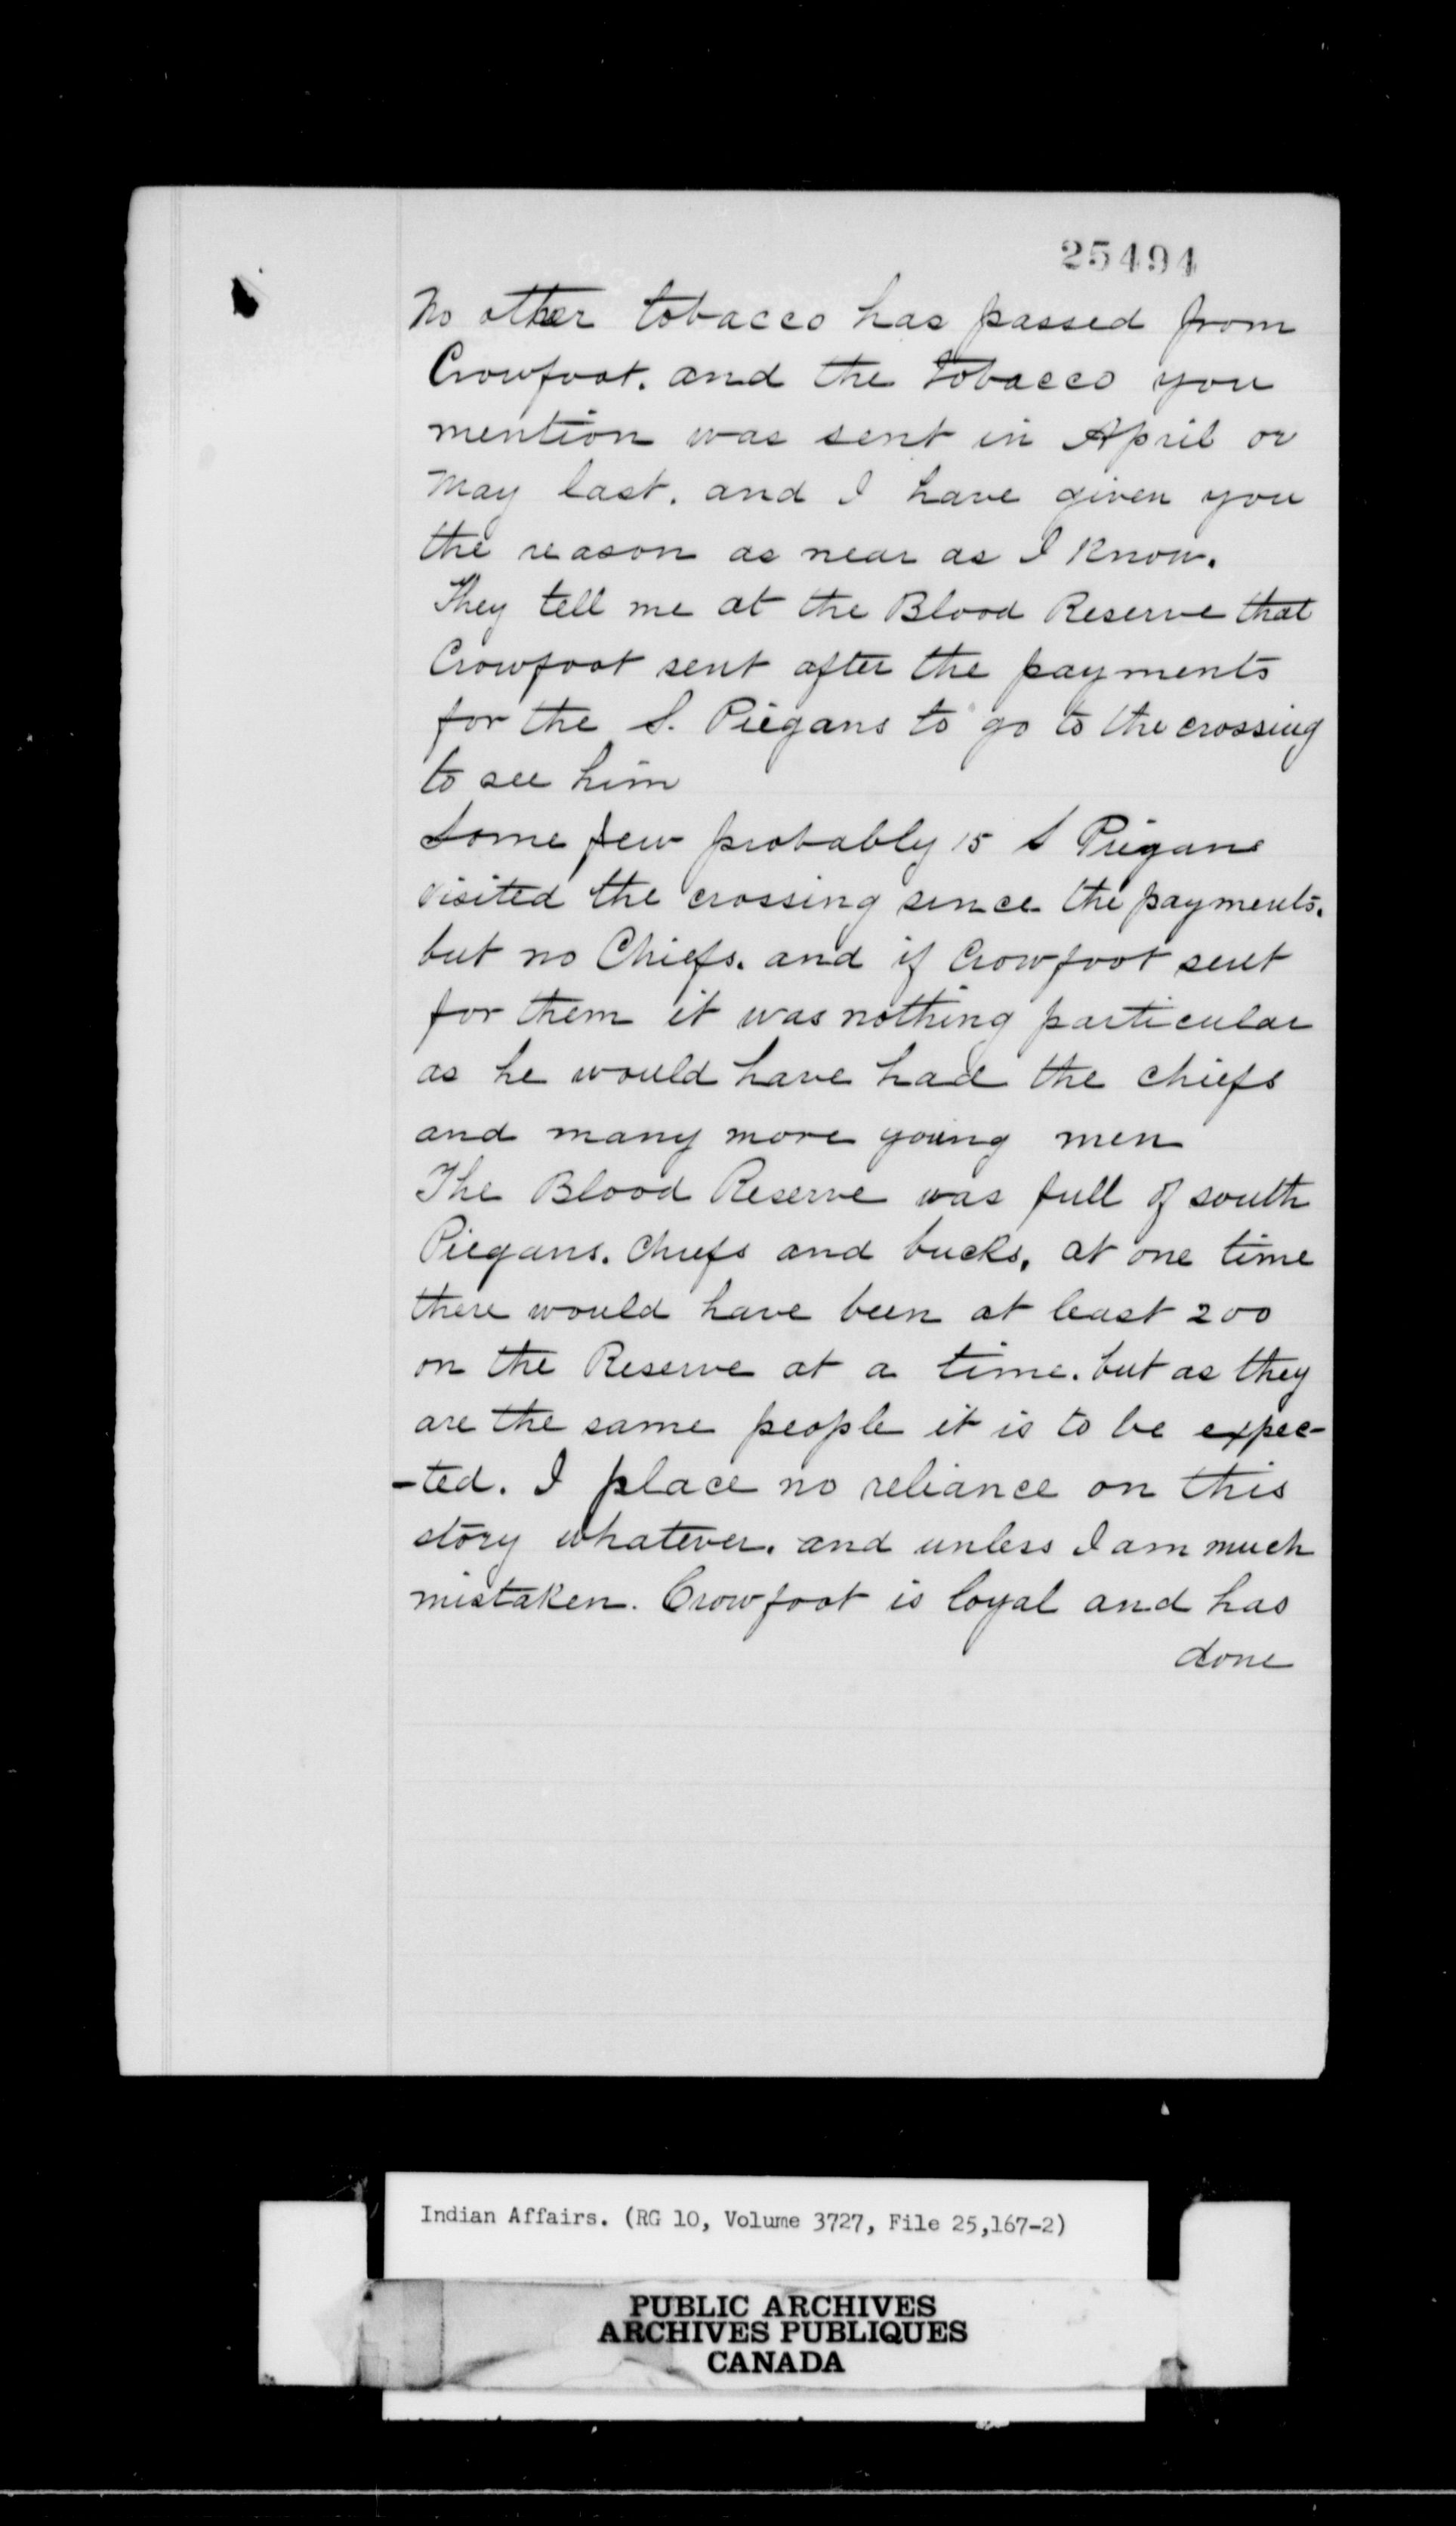 25494
No other tobacco has passed from
Crowfoot. and the tobacco you
mention was sent in April or
May last. and I have given you
the reason as near as I know.
They tell me at the Blood Reserve that
Crowfoot sent after the payments
for the S. Piegans to go to the crossing
to see him
Some few probably 15 S Piegans
visited the crossing since the payments.
but no Chiefs. and if Crowfoot sent
for them it was nothing particular
as he would have had the chiefs
and many more young men
The Blood Reserve was full of south
Piegans. Chiefs and bucks, at one time
there would have been at least 200
on the Reserve at a time. but as they
are the same people it is to be expec-
-ted. I place no reliance on this
story whatever. and unless I am much
mistaken. Crowfoot is loyal and has
done
Indian Affairs. (RG 10, Volume 3727, File 25,167-2)
PUBLIC ARCHIVES
ARCHIVES PUBLIQUES
CANADA